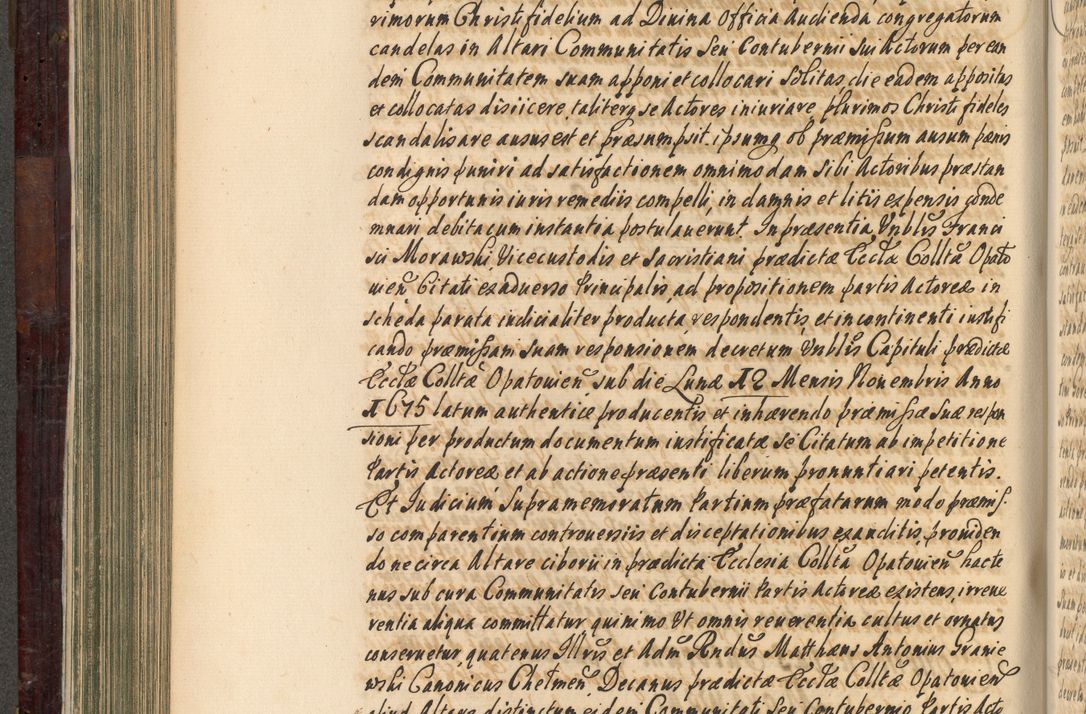 rimorum Christi fidelium ad Divina Officia Audienda congregatorum
candelas in Altari Communitatis Seu Contubernii sui Actorum per ean
dem Communitatem suam apponi et collocari solitas, die eadem appositas
et collocatas disiicere, taliterq se Actores iniuriare, plurimos Christi fideles
scandalisare ausus est et præsumpsit. ipsumq ob præmissum ausum pænis
condignis puniri ad satisfactionem omnimodam Sibi Actoribus præstan
dam opportunis iuris remediis compelli, in damnis et litis expensis conde
mnari debita cum instantia postulaverunt. In præsentia Vnblis Franci
sci Morawski, Vicecustodis et Sacristiani prædictæ Ecclæ Colltæ Opato
vien Citati ex adverso Principalis, ad propositionem partis Actoreæ in
scheda parata iudicialiter producta, respondentis, et in continenti iustifi
cando præmissam suam responsionem decretum Vnblis Capituli prædictæ
Ecclæ Colltæ Opatovien sub die Lunæ 12 Mensis Novembris Anno
1675 latum authentice producentis et inhærendo præmissæ Suæ respon
sioni per productum documentum iustificatæ Se Citatum ab impetitione
Partis Actoreæ et ab actione præsenti liberum pronuntiari petentis.
Et Iudicium Supramemoratum Partium præfatarum modo præmis.
so comparentium controversiis et disceptationibus exauditis, providen
do ne circa Altare ciborii in prædicta Ecclesia Collta Opatovien hacte
nus sub cura Communitatis seu Contubernii Partis Actoreæ existens, irreve
rentia aliqua committatur quinimo Vt omnis reverentia cultus et ornatus
conservetur, quatenus Illris et Adm Rndus Matthæus Antonius Granie
wski Canonicus Chelmen Decanus prædictæ Ecclæ Colltæ Opatovien
aliud Altare distinctum eidem Communitati Seu Contubernio Partis Acto